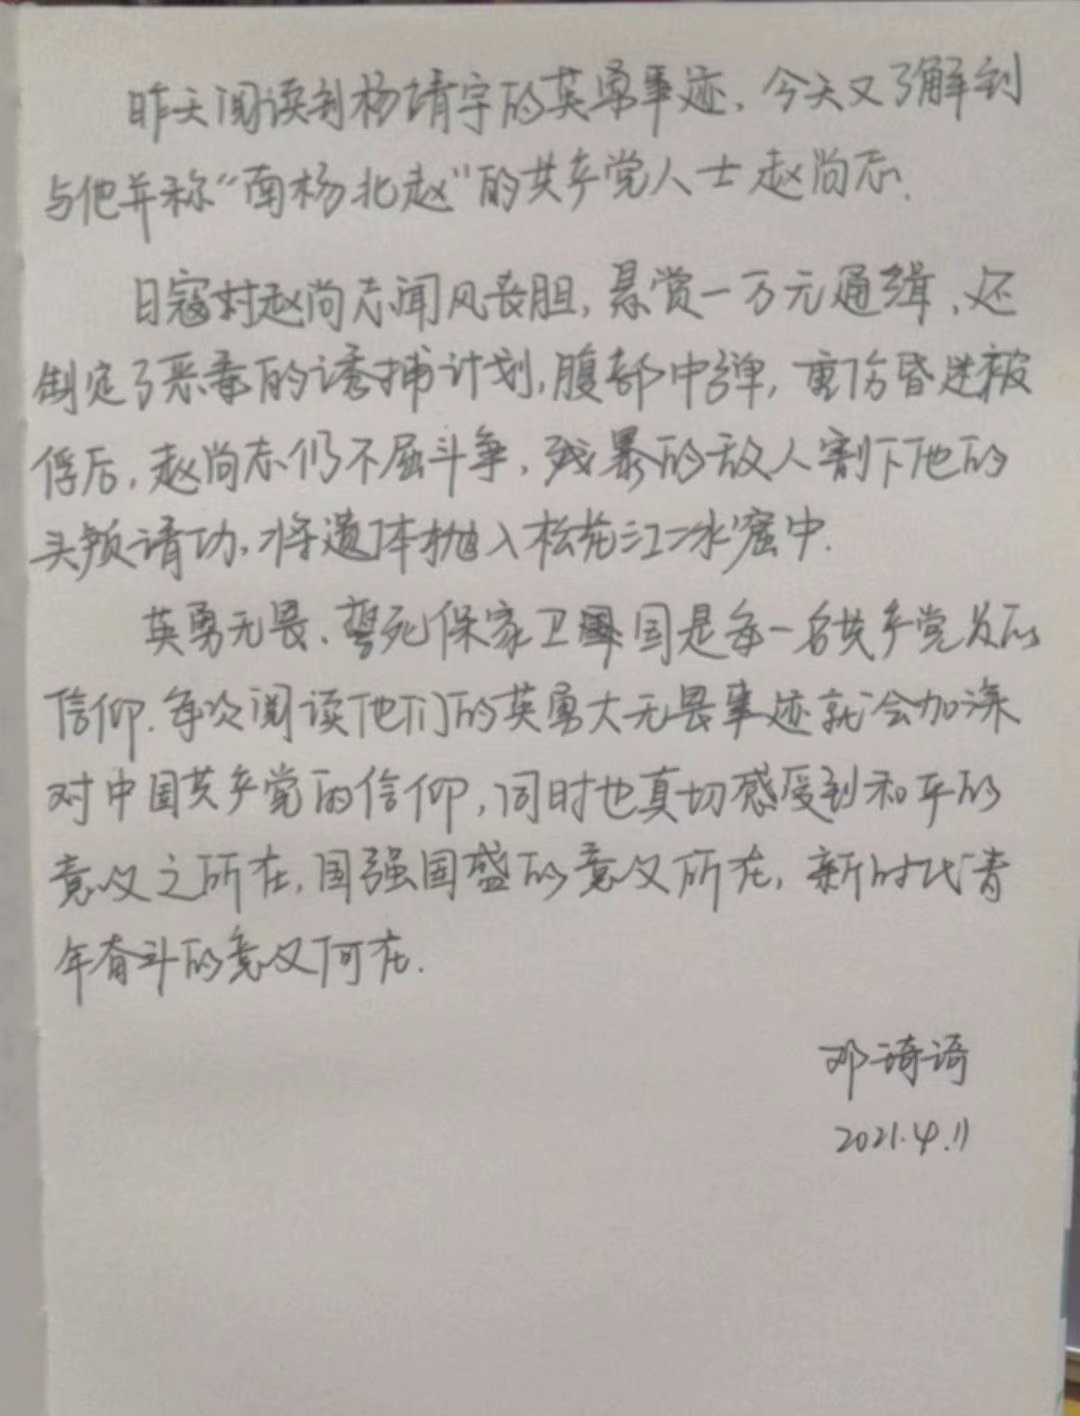 昨天阅读到杨靖宇的英勇事迹，今天又了解到
与他并称“南杨北赵”的共产党人士赵尚志.
日寇对赵尚志闻风丧胆，悬赏一万元通缉，还
制定了恶毒的诱捕计划，腹部中弹，重伤昏迷被
俘后，赵尚志仍不屈斗争，残暴的敌人割下他的
头颅请功，将遗体抛入松花江冰窟中.
英勇无畏、誓死保家卫国是每一名共产党员的
信仰.每次阅读他们的英勇大无畏事迹就会加深
对中国共产党的信仰，同时也真切感受到和平的
意义之所在，国强国盛的意义所在，新时代青
年奋斗的意义何在.
邓琦语
2021.4.11